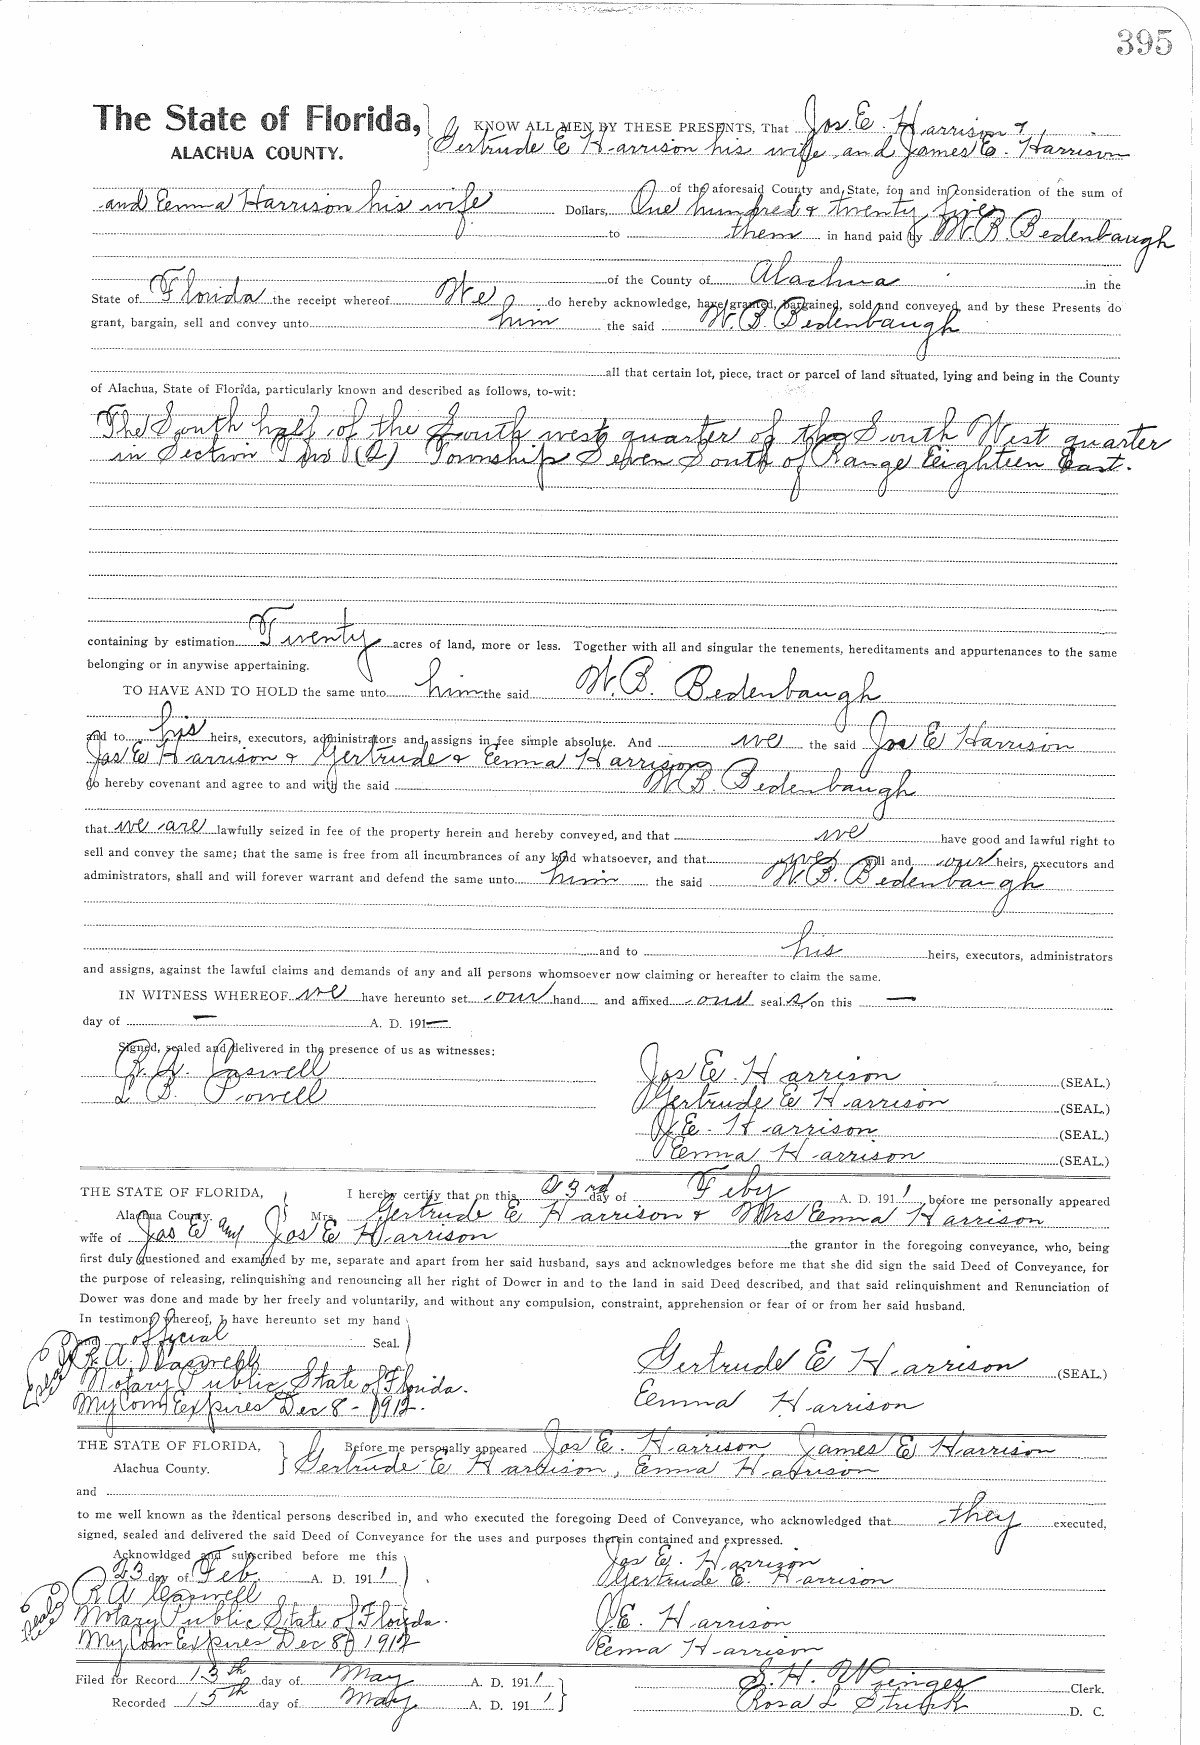 395
The State of Florida, KNOW ALL MEN BY THESE PRESENTS, That Jos. E. Harrison &
ALACHUA COUNTY. Gertrude E Harrison his wife and James E. Harrison
of the aforesaid County and State, for and in consideration of the sum of
and Emma Harrison his wife Dollars, One hundred & twenty five
to them in hand paid by W. B. Bedenbaugh
of the County of Alachua in the
State of Florida the receipt whereof We do hereby acknowledge, have granted, bargained, sold and conveyed, and by these Presents do
grant, bargain, sell and convey unto him the said W. B. Bedenbaugh
all that certain lot, piece, tract or parcel of land situated, lying and being in the County
of Alachua, State of Florida, particularly known and described as follows, to-wit:
The South half of the South west quarter of the South West quarter
in Section Two (2) Township Seven South of Range Eighteen East.
containing by estimation Twenty acres of land, more or less. Together with all and singular the tenements, hereditaments and appurtenances to the same
belonging or in anywise appertaining.
TO HAVE AND TO HOLD the same unto him the said W. B. Bedenbaugh
and to his heirs, executors, administrators and assigns in fee simple absolute. And we the said Jos E Harrison
Jas E Harrison & Gertrude & Emma Harrison
do hereby covenant and agree to and with the said W. B. Bedenbaugh
that we are lawfully seized in fee of the property herein and hereby conveyed, and that we have good and lawful right to
sell and convey the same; that the same is free from all incumbrances of any kind whatsoever, and that we will and our heirs, executors and
administrators, shall and will forever warrant and defend the same unto him the said W. B. Bedenbaugh
and to his heirs, executors, administrators
and assigns, against the lawful claims and demands of any and all persons whomsoever now claiming or hereafter to claim the same.
IN WITNESS WHEREOF we have hereunto set our hand and affixed our seal s on this —
day of — A. D. 191—
Signed, sealed and delivered in the presence of us as witnesses:
R. A. Caswell Jos E. Harrison (SEAL.)
L B. Powell Gertrude E Harrison (SEAL.)
J. E. Harrison (SEAL.)
Emma Harrison (SEAL.)
THE STATE OF FLORIDA, I hereby certify that on this 23rd day of Feby A. D. 191 1 before me personally appeared
Alachua County. Mrs. Gertrude E Harrison & Mrs Emma Harrison
wife of Jas E and Jos E Harrison the grantor in the foregoing conveyance, who, being
first duly questioned and examined by me, separate and apart from her said husband, says and acknowledges before me that she did sign the said Deed of Conveyance, for
the purpose of releasing, relinquishing and renouncing all her right of Dower in and to the land in said Deed described, and that said relinquishment and Renunciation of
Dower was done and made by her freely and voluntarily, and without any compulsion, constraint, apprehension or fear of or from her said husband.
In testimony whereof, I have hereunto set my hand
and official Seal.
R. A. Caswell Gertrude E Harrison (SEAL.)
Notary Public State of Florida.
My Com Expires Dec 8 - 1912. Emma Harrison
THE STATE OF FLORIDA, Before me personally appeared Jos E. Harrison James E Harrison
Alachua County. Gertrude E Harrison, Emma Harrison
and
to me well known as the identical persons described in, and who executed the foregoing Deed of Conveyance, who acknowledged that they executed,
signed, sealed and delivered the said Deed of Conveyance for the uses and purposes therein contained and expressed.
Acknowldged and subscribed before me this Jos E. Harrison
23 day of Feb A. D. 191 1 Gertrude E. Harrison
R A Caswell
Notary Public State of Florida. J. E. Harrison
My Com Expires Dec 8 1912 Emma Harrison
Filed for Record 13th day of May A. D. 191 1 S. H. Wienges Clerk.
Recorded 15th day of May A. D. 191 1 Rosa L D. C.